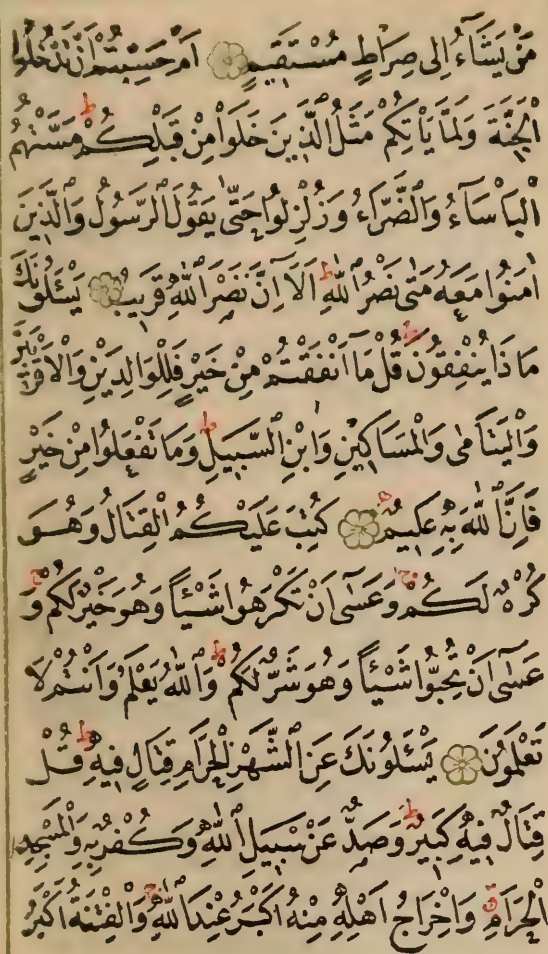 مَنْ يَشَاءُ اِلٰى صِرَاطٍ مُسْتَقِيمٍ اَمْ حَسِبْتُمْ اَنْ تَدْخُلُوا
الْجَنَّةَ وَلَمَّا يَاْتِكُمْ مَثَلُ الَّذِينَ خَلَوْا مِنْ قَبْلِكُمْ ط مَسَّتْهُمُ
الْبَاْسَاءُ وَالضَّرَّاءُ وَزُلْزِلُوا حَتّٰى يَقُولَ الرَّسُولُ وَالَّذِينَ
اٰمَنُوا مَعَهُ مَتٰى نَصْرُ اللّٰهِ ط اَلَا اِنَّ نَصْرَ اللّٰهِ قَرِيبٌ يَسْـَٔلُونَكَ
مَاذَا يُنْفِقُونَ ط قُلْ مَا اَنْفَقْتُمْ مِنْ خَيْرٍ فَلِلْوَالِدَيْنِ وَالْاَقْرَبِينَ
وَالْيَتَامٰى وَالْمَسَاكِينِ وَابْنِ السَّبِيلِ ط وَمَا تَفْعَلُوا مِنْ خَيْرٍ
فَاِنَّ اللّٰهَ بِهِ عَلِيمٌ كُتِبَ عَلَيْكُمُ الْقِتَالُ وَهُوَ
كُرْهٌ لَكُمْ ج وَعَسٰى اَنْ تَكْرَهُوا شَيْـًٔا وَهُوَ خَيْرٌ لَكُمْ ج وَ
عَسٰى اَنْ تُحِبُّوا شَيْـًٔا وَهُوَ شَرٌّ لَكُمْ ط وَاللّٰهُ يَعْلَمُ وَاَنْتُمْ لَا
تَعْلَمُونَ يَسْـَٔلُونَكَ عَنِ الشَّهْرِ الْحَرَامِ قِتَالٍ فِيهِ ط قُلْ
قِتَالٌ فِيهِ كَبِيرٌ ط وَصَدٌّ عَنْ سَبِيلِ اللّٰهِ وَكُفْرٌ بِهِ وَالْمَسْجِدِ
الْحَرَامِ ق وَاِخْرَاجُ اَهْلِهِ مِنْهُ اَكْبَرُ عِنْدَ اللّٰهِ ج وَالْفِتْنَةُ اَكْبَرُ